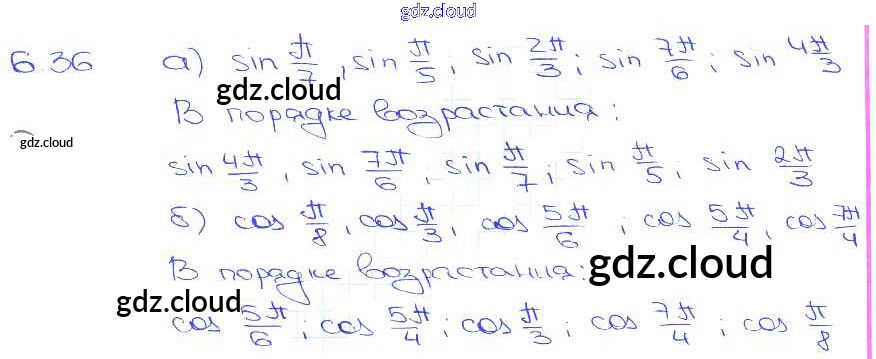 gdz.cloud
6.36 а) sin π/7, sin π/5; sin 2π/3; sin 7π/6; sin 4π/3
gdz.cloud
В порядке возрастания:
gdz.cloud
sin 4π/3, sin 7π/6, sin π/7; sin π/5; sin 2π/3
б) cos π/8, cos π/3, cos 5π/6; cos 5π/4, cos 7π/4
В порядке возрастания:
gdz.cloud
gdz.cloud
cos 5π/6; cos 5π/4; cos π/3; cos 7π/4; cos π/8